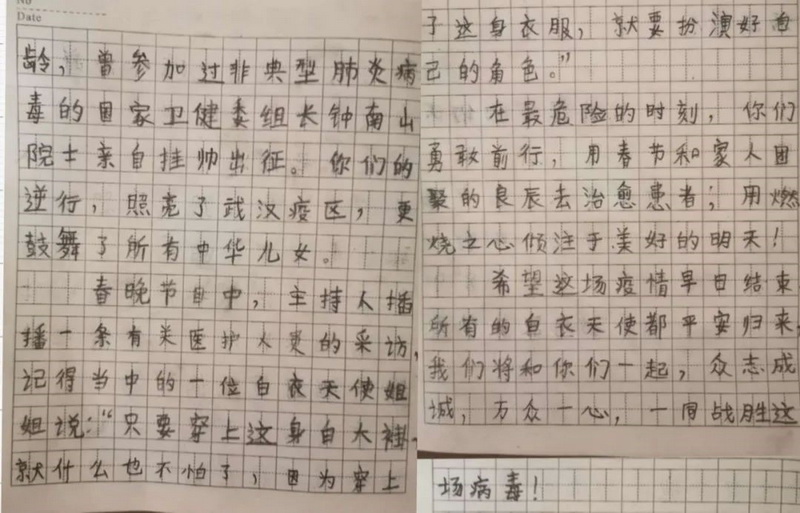 No
Date
龄，曾参加过非典型肺炎病
毒的国家卫健委组长钟南山
院士亲自挂帅出征。你们的
逆行，照亮了武汉疫区，更
鼓舞了所有中华儿女。
春晚节目中，主持人播
播一条有关医护人员的采访，
记得当中的一位白衣天使姐
姐说：“只要穿上这身白大褂，
就什么也不怕了，因为穿上
了这身衣服，就要扮演好自
己的角色。”
在最危险的时刻，你们
勇敢前行，用春节和家人团
聚的良辰去治愈患者；用燃
烧之心倾注于美好的明天！
希望这场疫情早日结束
所有的白衣天使都平安归来，
我们将和你们一起，众志成
城，万众一心，一同战胜这
场病毒！